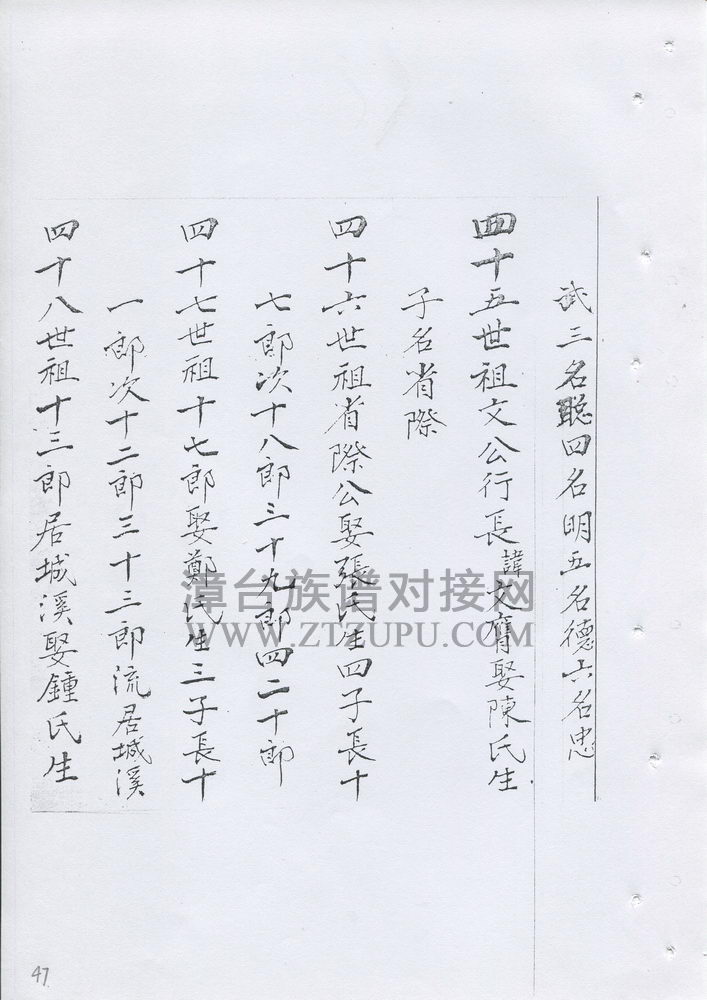 武三名聪四名明五名德六名忠
四十五世祖文公行長諱文膺娶陳氏生
子名省際
四十六世祖省際公娶張氏生四子長十
七郎次十八郎三十九郎四二十郎
四十七世祖十七郎娶鄭氏生三子長十
一郎次十二郎三十三郎流居城溪
四十八世祖十三郎居城溪娶鍾氏生
漳台族谱对接网
WWW.ZTZUPU.COM
47